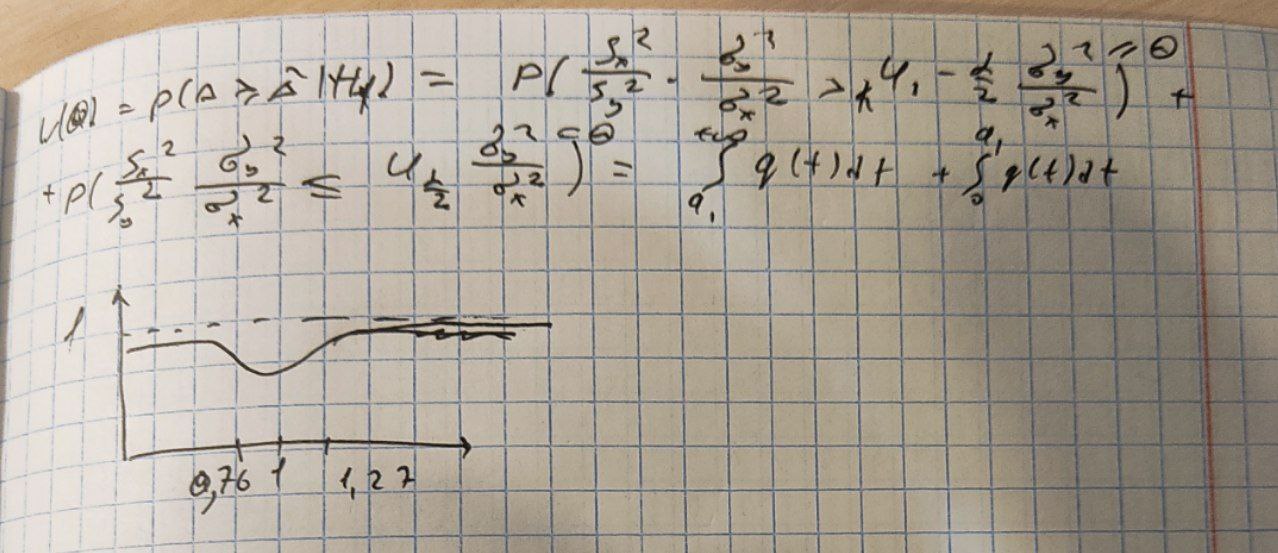 W(θ) = P(Δ ≥ Δ̂ | H₁) = P( Sₓ²/S_y² · σ_y²/σₓ² > U₁₋α/2 σ_y²/σₓ² ) = θ +
+ P( Sₓ²/S_y² σ_y²/σₓ² ≤ U_α/2 σ_y²/σₓ² ) = θ = ∫_{a₁}^{+∞} q(t)dt + ∫_0^{a₁} q(t)dt
1
0,76 1 1,27